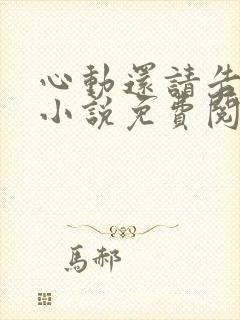 心動還請告
小說免費閱
馬郝